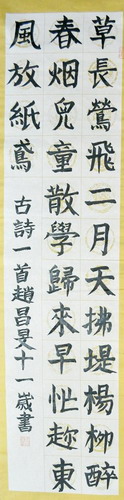 草長鶯飛二月天拂堤楊柳醉
春烟兒童散學歸來早忙趁東
風放紙鳶
古詩一首趙昌旻十一歲書